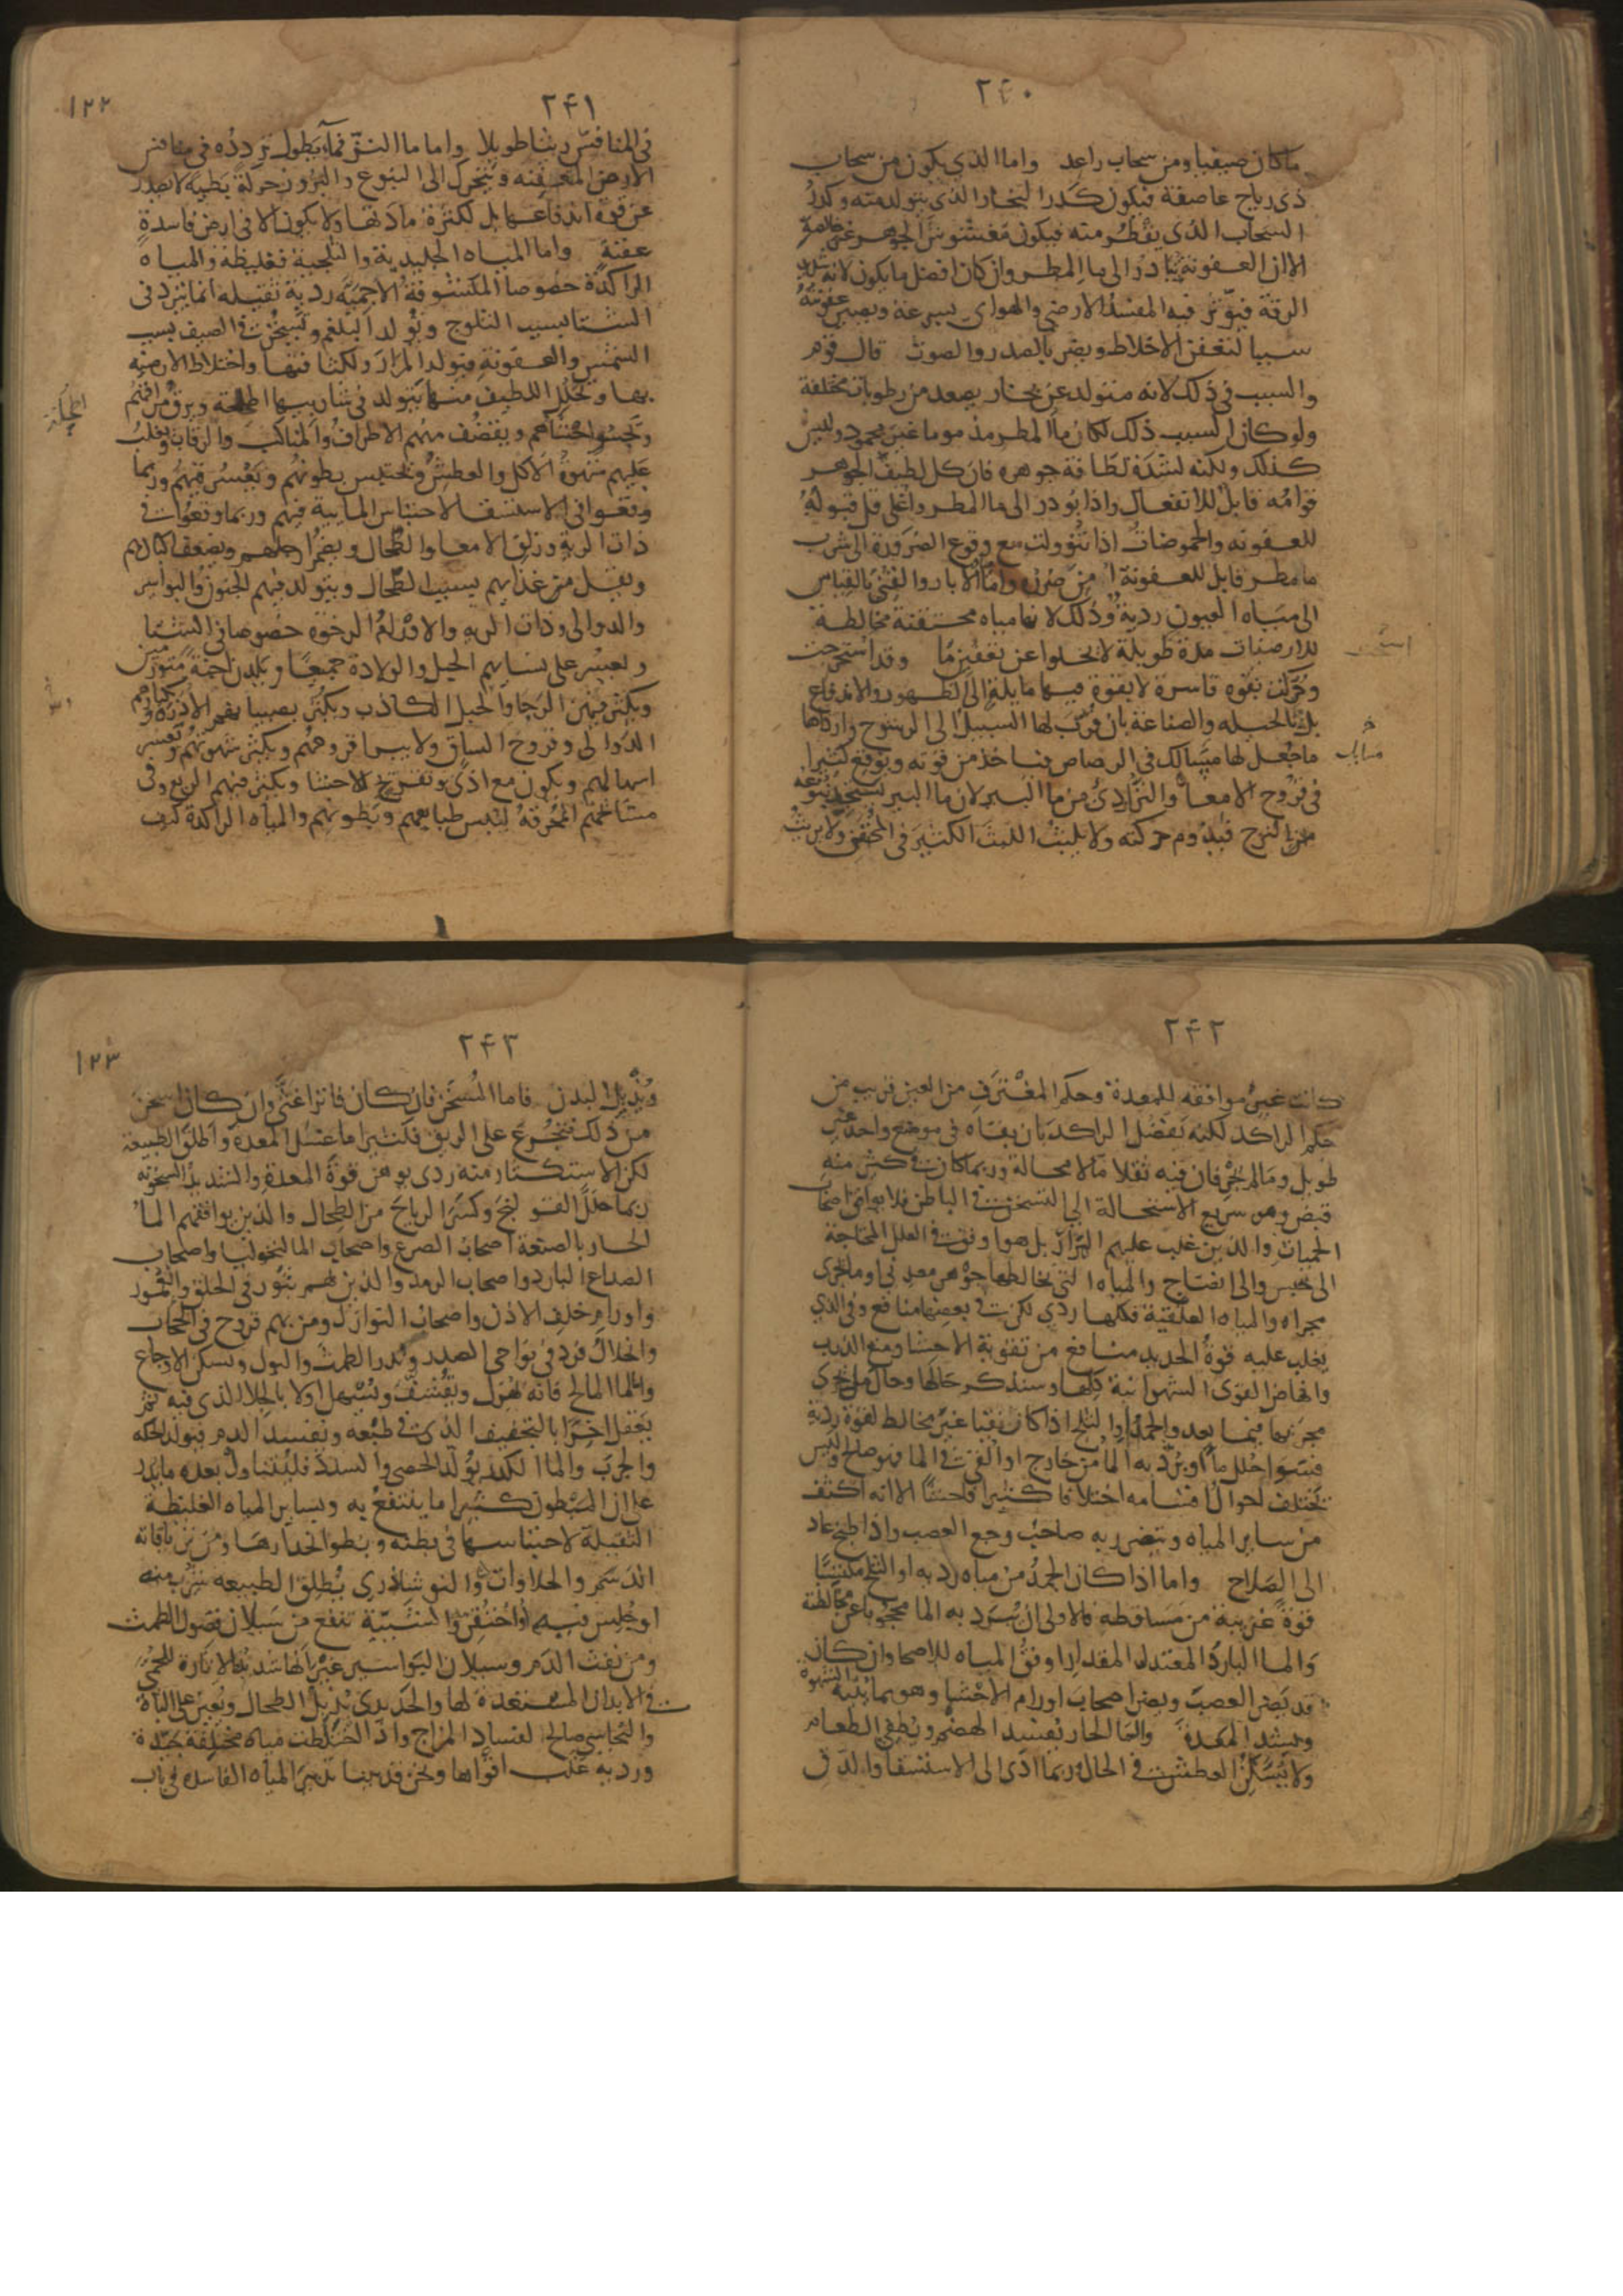 ٢۴٠
ما كان صيفيا ومن سحاب راعد واما الذي يكون من سحاب
ذى رياح عاصفة فيكون كدر البخار الذى يتولد منه وكدر
السحاب الذى يقطر منه فيكون مغشوش الجوهر غير خالصه
الا ان العفونة تبادر الى ما المطر وان كان افضل ما يكون لانه شديد
الرقة فيوثر فيه المفسد الارضى والهواى بسرعة ويصير عفونته
سببا لتعفن الاخلاط ويضر بالصدر والصوت قال قوم
والسبب فى ذلك لانه متولد عن بخار يصعد من رطوبات مختلفة
ولو كان السبب ذلك لكان ما المطر مذموما غير محمود وليس
كذلك ولكنه لشدة لطافة جوهره فان كل لطيف الجوهر
قوامه قابل للانفعال واذا بودر الى ما المطر واغلى قل قبوله
للعفونه والحموضات اذا تنوولت مع وقوع الضرورة الى شرب
ما مطر قابل للعفونة امن ضرره واما الابار والقنى بالقياس
الى مياه العيون ردية وذلك لانها مياه محتقنة مخالطة
للارضيات مدة طويلة لا يخلوا عن تعفين ما وقد استخرجت
وحركت بقوه قاسرة لا بقوة فيها مايلة الى الظهور والاندفاع
بل بالحيله والصناعة بان قرب لها السبيل الى الرشوح واردأها
ما جعل لها مسالك فى الرصاص فياخذ من قوته ويوقع كثيرا
فى قروح الامعا والنز اردى من ما البير لان ما البير يستجد نبوعه
بالنزح فيدوم حركته ولا يلبث اللبث الكثير فى المحقن ولا يريث
مسالك
٢۴١
١٢٢
فى المنافس ريثا طويلا واما ما النز فما يطول تردده فى منافس
الارض المعفنه ويتحرك الى النبوع والبروز حركة بطيه لا تصدر
عن قوة اندفاعها بل لكثرة مادتها ولا يكون الا فى ارض فاسدة
عفنة واما المياه الجليدية والثلجية فغليظة والمياه
الراكدة خصوصا المكشوفة الاجمية ردية ثقيله انما تبرد فى
الشتا بسبب الثلوج وتولد البلغم وتسخن فى الصيف بسبب
الشمس والعفونة فيولد المرار ولكثافتها واختلاط الارضيه
بها وتحلل اللطيف منها يتولد فى شاربيها اطحلة ويرق مراقهم
وتجسوا احشاهم ويقضف منهم الاطراف والمناكب والرقاب ويغلب
عليهم شهوة الاكل والعطش وتحتبس بطونهم ويعسر قيهم وربما
وقعوا فى الاستسقا لاحتباس المايية فيهم وربما وقعوا فى
ذات الرية وزلق الامعا والطحال ويضمر ارجلهم ويضعف اكبادهم
ويقل من غذايهم بسبب الطحال ويتولد فيهم الجنون والبواسير
والدوالى وذات الريه والاورام الرخوه خصوصا فى الشتا
ويعسر على نسايهم الحبل والولادة جميعا ويلدن اجنة متورمين
ويكثر فيهن الرجا والحبل الكاذب ويكثر بصبيانهم الادرة وبكبارهم
الدوالى وقروح الساق ولا يبرا قروحهم ويكثر شهوتهم ويعسر
اسهالهم ويكون مع اذى وتقريح الاحشا ويكثر فيهم الربع وفى
مشايخهم المحرقة ليبس طبايعهم وبطونهم والمياه الراكدة كيف
٢۴٢
كانت غير موافقه للمعدة وحكم المغترف من العين قريب من
حكم الراكد لكنه يفضل الراكد بان بقاه فى موضع واحد غير
طويل وما لم يجر فان فيه ثقلا ما لا محالة وربما كان فى كثير منه
قبض وهو سريع الاستحالة الى التسخن فى الباطن فلا يوافق اصحاب
الحميات والذين غلب عليهم المرار بل هو اوفق فى العلل المحتاجة
الى حبس والى انضاج والمياه التى يخالطها جوهر معدنى او ما يجرى
مجراه والمياه العلقية فكلها ردى لكن فى بعضها منافع وفى الذى
يغلب عليه قوة الحديد منافع من تقوية الاحشا ومنع الذرب
وانهاض القوى الشهوانية كلها وسنذكر حالها وحال ما يجرى
مجريها فيما بعد والجمد والثلج اذا كان نقيا غير مخالط لقوة ردية
فسوا حلل ما او برد به الما من خارج او القى فى الما فهو صالح وليس
تختلف احوال اقسامه اختلافا كثيرا فاحشا الا انه اكثف
من ساير المياه ويتضرر به صاحب وجع العصب واذا طبخ عاد
الى الصلاح واما اذا كان الجمد من مياه رديه او الثلج مكتسبا
قوة غريبة من مساقطه فالاولى ان يبرد به الما محجوبا عن مخالطته
والما البارد المعتدل المقدار اوفق المياه للاصحا وان كان
قد يضر العصب ويضر اصحاب اورام الاحشا وهو مما ينبه الشهوه
ويشد المعدة والما الحار يفسد الهضم ويطفى الطعام
ولا يسكن العطش فى الحال وربما ادى الى الاستسقا والدق
٢۴٣
١٢٣
ويذبل البدن فاما المسخن فان كان فاترا غثى وان كان اسخن
من ذلك فتجرع على الريق فكثيرا ما غسل المعدة واطلق الطبيعة
لكن الاستكثار منه ردى يوهن قوة المعدة والشديد السخونه
ربما حلل القولنج وكسر الرياح من الطحال والذين يوافقهم الما
الحار بالصنعة اصحاب الصرع واصحاب المالنخوليا واصحاب
الصداع البارد واصحاب الرمد والذين بهم بثور فى الحلق والعمور
واورام خلف الاذن واصحاب النوازل ومن بهم قروح فى الحجاب
وانحلال فرد فى نواحى الصدر ويدر الطمث والبول ويسكن الاوجاع
واما المالح فانه يهزل ويقشف ويسهل اولا بالجلا الذى فيه ثم
يعقل اخرا بالتجفيف الذى فى طبعه وتفسد الدم فيولد الحكه
والجرب والما الكدر يولد الحصى والسدد فليتناول بعده ما يدر
على ان المبطون كثيرا ما ينتفع به وبساير المياه الغليظة
الثقيلة لاحتباسها فى بطنه وبطو انحدارها ومن ترياقاته
الدسم والحلاوات والنوشادرى يطلق الطبيعه شرب منه
او جلس فيه او احتقن والشبية تنفع من سيلان فضول الطمث
ومن نفث الدم وسيلان البواسير غير انها شديدة الاثارة للحمى
فى الابدان المستعدة لها والحديدى يزيل الطحال ويعين على الباه
والنحاسى صالح لفساد المزاج واذا اختلطت مياه مختلفة جيدة
وردية غلب اقواها ونحن قد بينا تدبير المياه الفاسده فى باب